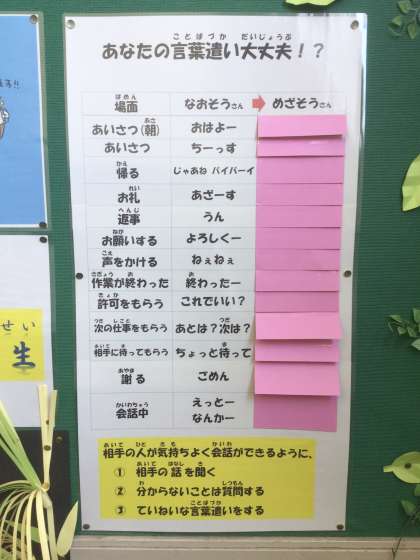 あなたの言葉遣い大丈夫！？
場面 なおそうさん ➡ めざそうさん
あいさつ(朝) おはよー
あいさつ ちーっす
帰る じゃあね バイバーイ
お礼 あざーす
返事 うん
お願いする よろしくー
声をかける ねぇねぇ
作業が終わった 終わったー
許可をもらう これでいい？
次の仕事をもらう あとは？次は？
相手に待ってもらう ちょっと待って
謝る ごめん
会話中 えっとー
なんかー
相手の人が気持ちよく会話ができるように、
① 相手の話を聞く
② 分からないことは質問する
③ ていねいな言葉遣いをする
せい
生